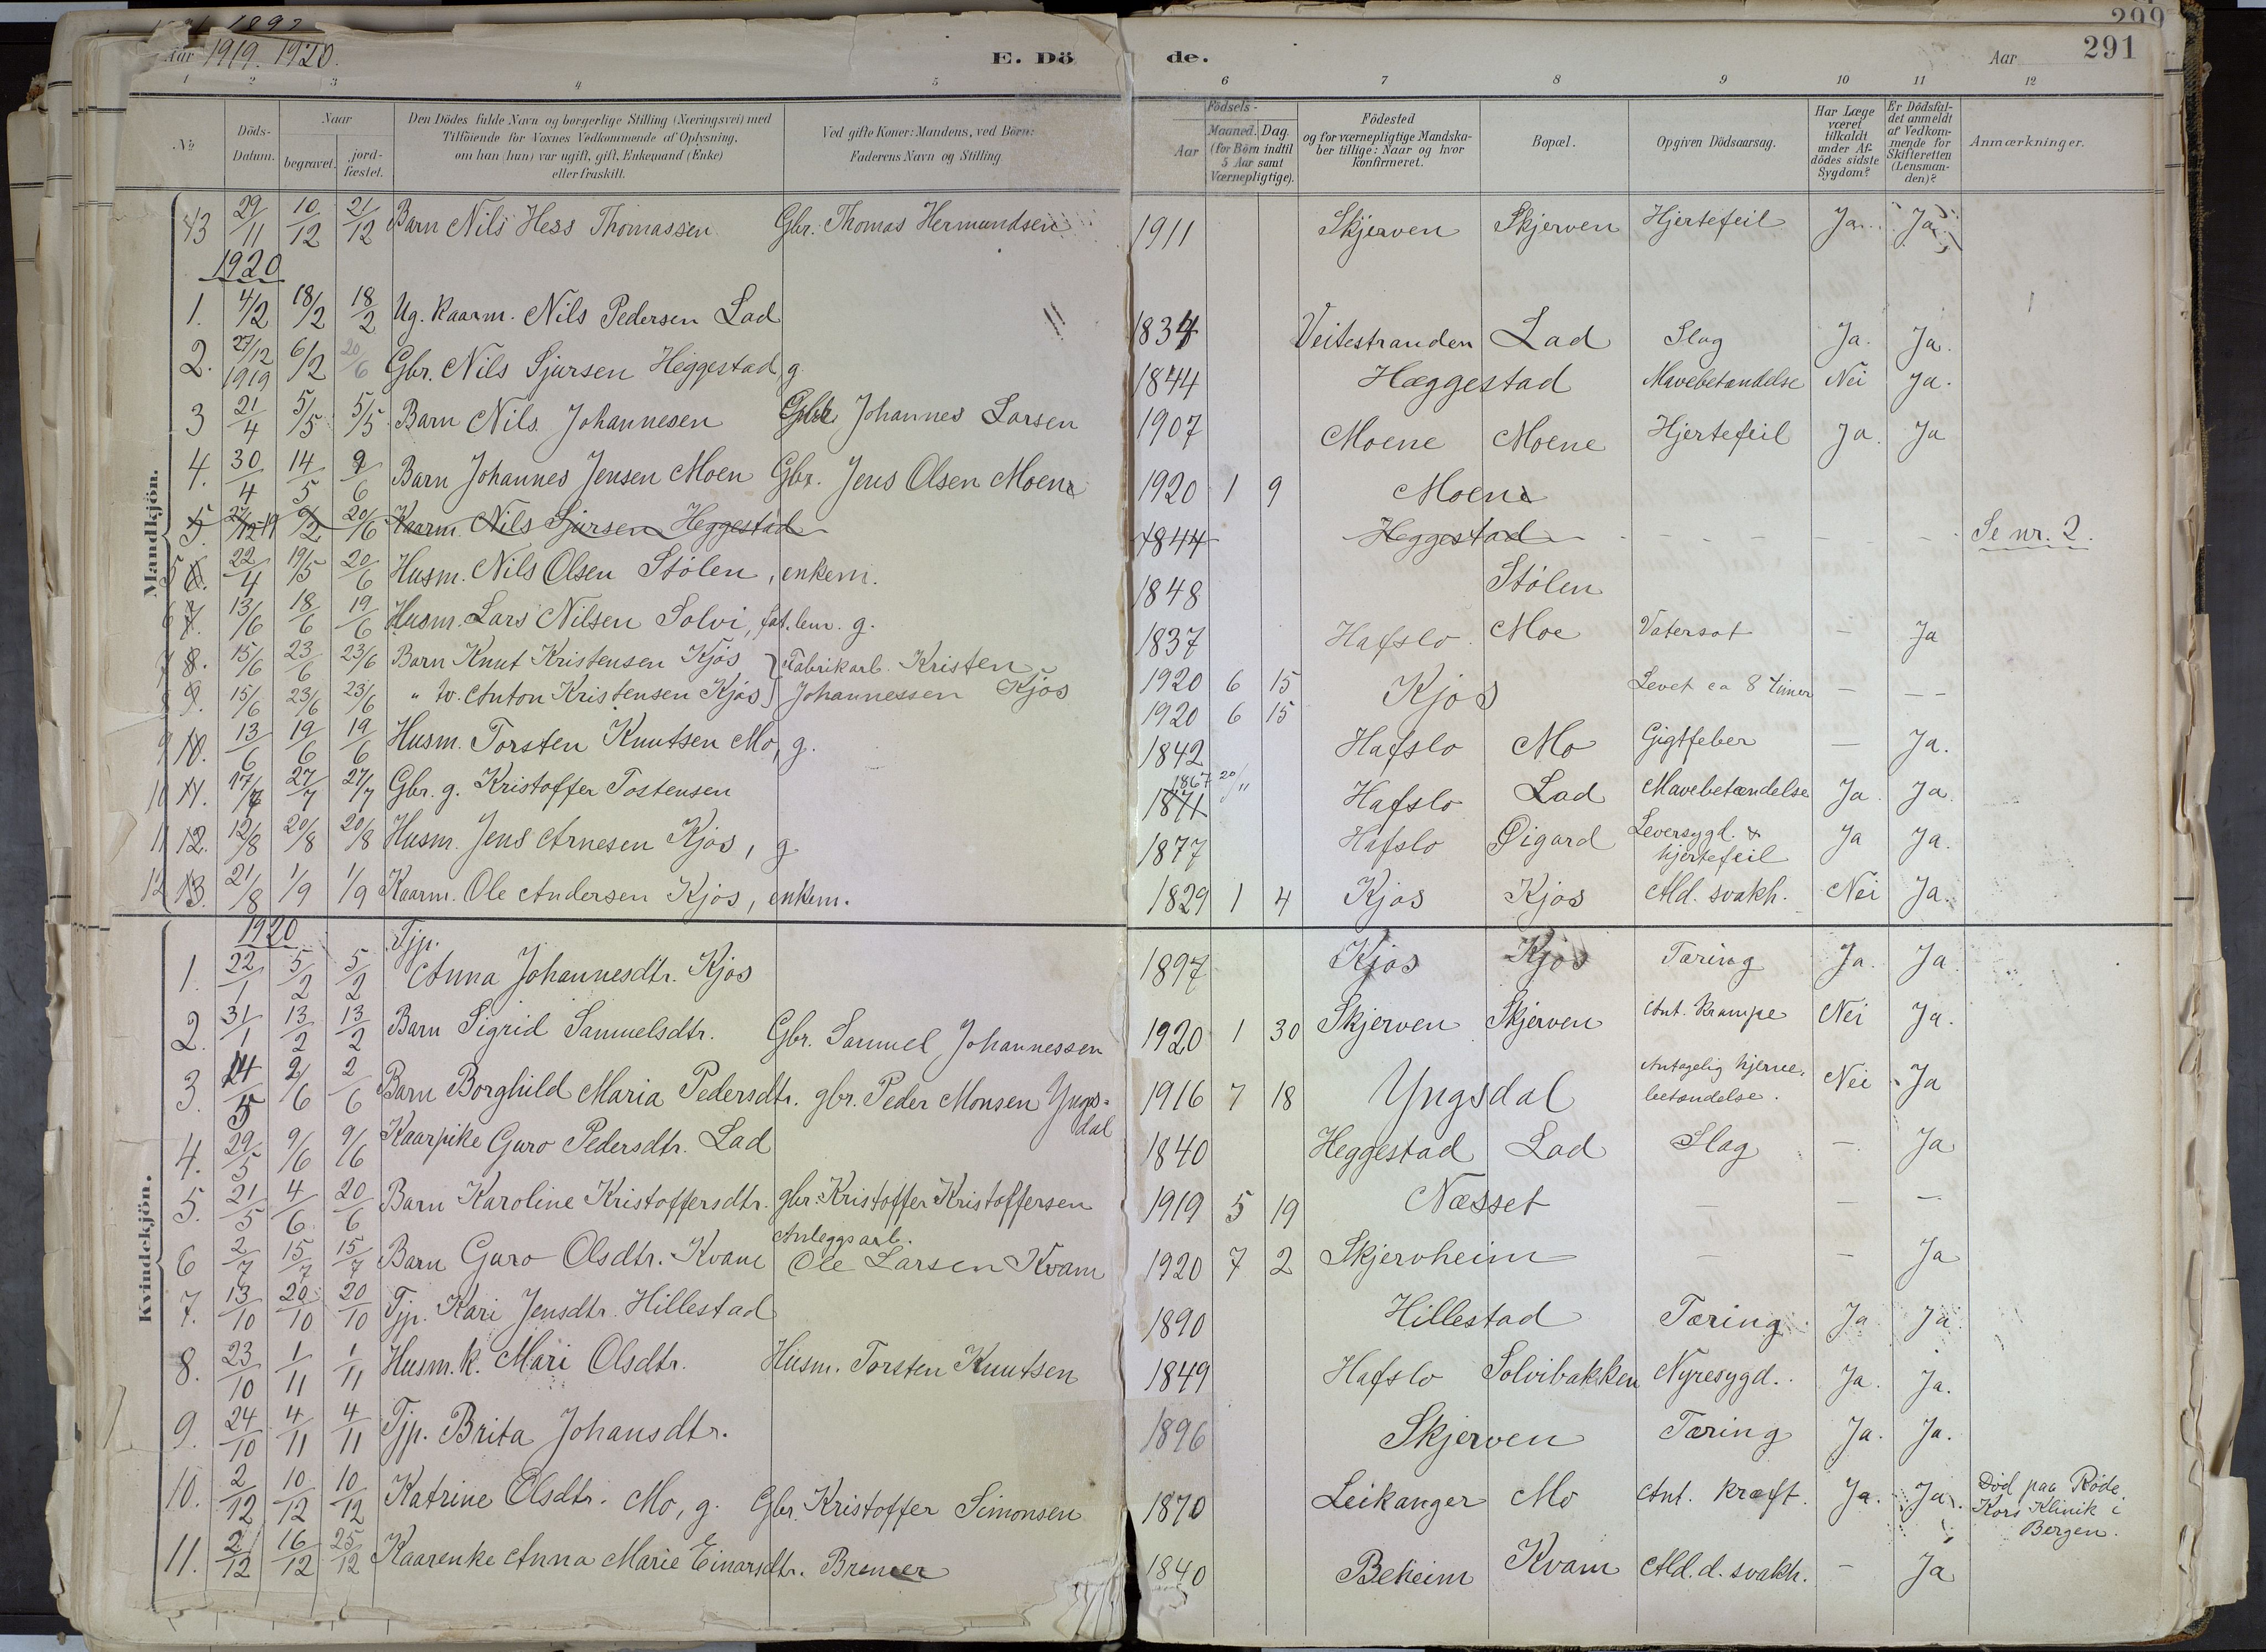 1892
299
Aar 1919. 1920.
E. Dö de.
Aar 291
1 2 3 4 5 6 7 8 9 10 11 12
№
Döds-Datum.
Naar
begravet.
jord-fæstet.
Den Dödes fulde Navn og borgerlige Stilling (Næringsvei) med
Tilföiende for Voxnes Vedkommende af Oplysning,
om han (hun) var ugift, gift, Enkemand (Enke)
eller fraskilt.
Ved gifte Koner: Mandens, ved Börn:
Faderens Navn og Stilling
Födsels-
Aar
Maaned. Dag.
(for Börn indtil
5 Aar samt
Værnepligtige).
Födested
og for værnepligtige Mandska-
ber tillige: Naar og hvor
konfirmeret.
Bopæl.
Opgiven Dödsaarsag.
Har Læge
været
tilkaldt
under Af-
dödes sidste
Sygdom?
Er Dödsfal-
det anmeldt
af Vedkom-
mende for
Skifteretten
(Lensman-
den)?
Anmærkninger.
Mandkjön.
43 29/11 10/12 21/12 Barn Nils Hess Thomassen Gbr. Thomas Hermundsen 1911 Skjerven Skjerven Hjertefeil Ja. Ja
1920
1. 4/2 18/2 18/2 Ug. Kaarm. Nils Pedersen Lad 1834 Veitestranden Lad Slag Ja. Ja.
2. 27/12 1919 6/2 20/6 Gbr. Nils Sjursen Heggestad, g. 1844 Hæggestad Mavebetændelse Nei Ja.
3 21/4 5/5 5/5 Barn Nils Johannesen Gbr. Johannes Larsen 1907 Moene Moene Hjertefeil Ja. Ja
4. 30/4 14/5 9/6 Barn Johannes Jensen Moen Gbr. Jens Olsen Moene 1920 1 9 Moene
5. 27/12 19 6/2 20/6 Kaarm. Nils Sjursen Heggestad 1844 Heggestad Se nr. 2.
5 6. 22/4 19/5 20/6 Husm. Nils Olsen Stölen, enkem. 1848 Stölen
6 7. 13/6 18/6 19/6 Husm. Lars Nilsen Solvi, fat. lem. g. 1837 Hafslo. Moe Vatersot — Ja
7 8. 15/6 23/6 23/6 Barn Knut Kristensen Kjös } Fabrikarb. Kristen 1920 6 15 Kjos Levet ca 8 timer — —
8 9. 15/6 23/6 23/6 " tv. Anton Kristensen Kjös } Johannessen Kjös 1920 6 15
9 10. 13/6 19/6 19/6 Husm. Torsten Knutsen Mo, g. 1842 Hafslo Mo Gigtfeber — Ja.
10 11. 17/7 27/7 27/7 Gbr. g. Kristoffer Tostensen 1867 1871 20/11 Hafslo Lad Mavebetændelse Ja Ja
11 12. 12/8 20/8 20/8 Husm. Jens Arnesen Kjos, g 1877 Hafslo Øigard Leversygd. & hjertefeil Ja Ja.
12 13. 21/8 1/9 1/9 Kaarm. Ole Andersen Kjos, enkem. 1829 1 4 Kjos Kjos Ald. svakh. Nei Ja.
Kvindekjön.
1920
1. 22/1 5/2 5/2 Tjp. Anna Johannesdtr. Kjos 1897 Kjos Kjos Tæring Ja. Ja
2. 31/1 13/2 13/2 Barn Sigrid Samuelsdtr. Gbr. Samuel Johannessen 1920 1 30 Skjerven Skjerven Ant. Krampe Nei Ja.
3. 24/5 2/6 2/6 Barn Borghild Maria Pedersdtr. gbr. Peder Monsen Yngs-dal 1916 7 18 Yngsdal Antagelig hjerne-betændelse. Nei Ja
4. 29/5 9/6 9/6 Kaarpike Guro Pedersdtr. Lad 1840 Heggestad Lad Slag — Ja
5. 21/5 4/6 20/6 Barn Karoline Kristoffersdtr. gbr. Kristoffer Kristoffersen 1919 5 19 Næsset — — —
6 2/7 15/7 15/7 Barn Guro Olsdtr. Kvam Anleggsarb. Ole Larsen Kvam 1920 7 2 Skjervheim — — Ja
7. 13/10 20/10 20/10 Tjp. Kari Jensdtr. Hillestad 1890 Hillestad Tæring Ja Ja.
8. 23/10 1/11 1/11 Husm.k. Mari Olsdtr. Husm. Torsten Knutsen 1849 Hafslo Solvibakken Nyresygd. Ja. Ja.
9. 24/10 4/11 4/11 Tjp. Brita Johansdtr. 1896 Skjerven Tæring Ja. Ja.
10. 2/12 10/12 10/12 Katrine Olsdtr. Mo, g. Gbr. Kristoffer Simonsen 1870 Leikanger Mo Ant. kræft. Ja. Ja. Död paa Röde Kors Klinik i Bergen.
11. 2/12 16/12 25/12 Kaarenke Anna Marie Einarsdtr. Bremer 1840 Beheim Kvam Ald.d. svakh. — Ja